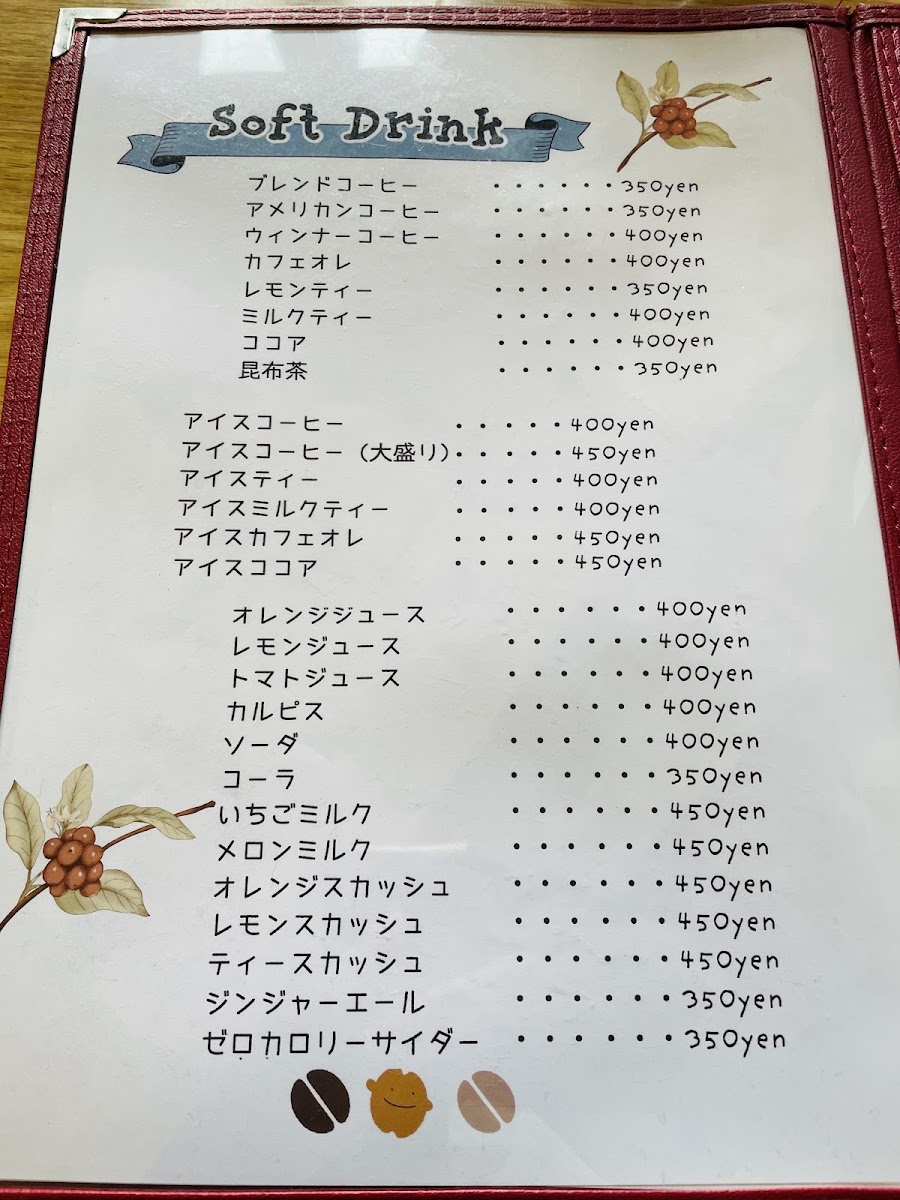 Soft Drink
ブレンドコーヒー ・・・・・・350yen
アメリカンコーヒー ・・・・・・350yen
ウィンナーコーヒー ・・・・・・400yen
カフェオレ ・・・・・・400yen
レモンティー ・・・・・・350yen
ミルクティー ・・・・・・400yen
ココア ・・・・・・400yen
昆布茶 ・・・・・・350yen
アイスコーヒー ・・・・・400yen
アイスコーヒー（大盛り）・・・・・450yen
アイスティー ・・・・・400yen
アイスミルクティー ・・・・・400yen
アイスカフェオレ ・・・・・450yen
アイスココア ・・・・・450yen
オレンジジュース ・・・・・・400yen
レモンジュース ・・・・・・400yen
トマトジュース ・・・・・・400yen
カルピス ・・・・・・400yen
ソーダ ・・・・・・400yen
コーラ ・・・・・・350yen
いちごミルク ・・・・・・450yen
メロンミルク ・・・・・・450yen
オレンジスカッシュ ・・・・・・450yen
レモンスカッシュ ・・・・・・450yen
ティースカッシュ ・・・・・・450yen
ジンジャーエール ・・・・・・350yen
ゼロカロリーサイダー ・・・・・・350yen